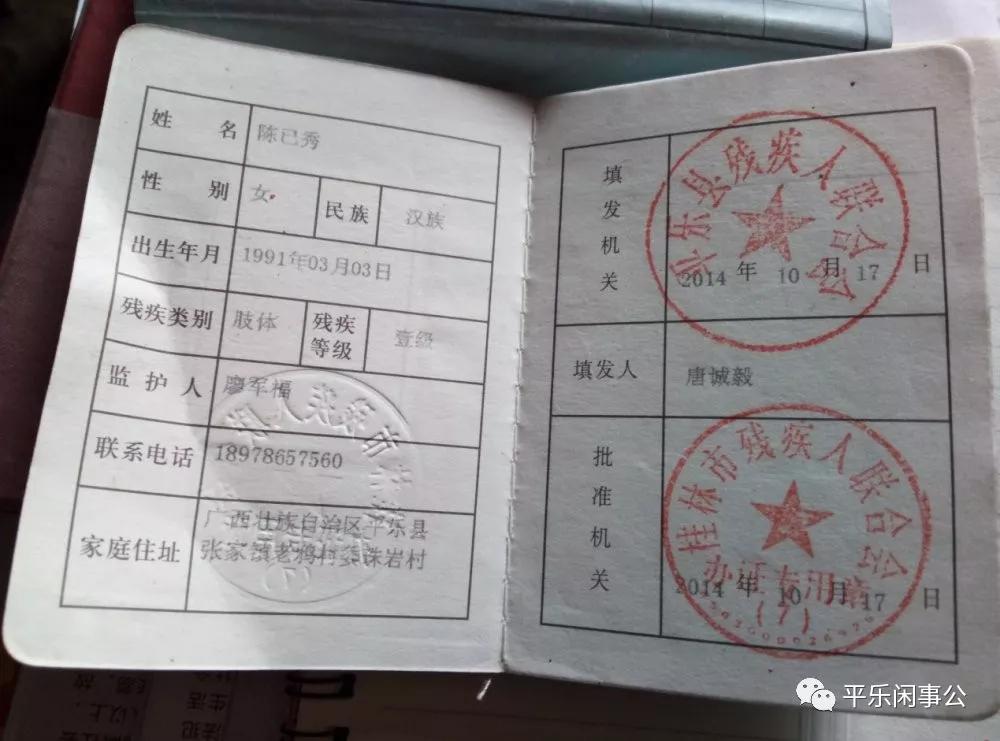 姓名 陈已秀
性别 女 民族 汉族
出生年月 1991年03月03日
残疾类别 肢体 残疾等级 壹级
监护人 廖军福
联系电话 18978657560
家庭住址 广西壮族自治区平乐县
张家镇老鸦村蒌珠岩村
填发机关
平乐县残疾人联合会
2014 年 10 月 17 日
填发人 唐诚毅
批准机关
桂林市残疾人联合会
办证专用章
(7)
2014 年 10 月 17 日
平乐闲事公